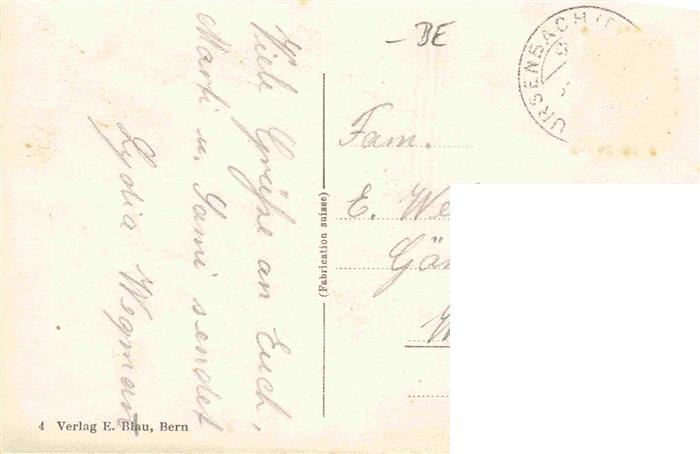 Viele Grüße an Euch,
Marti u. Sami sendet
Lydia Wegman
- BE
URSENBACH
Fam.
E. We
Gä
W
(Fabrication suisse)
4 Verlag E. Blau, Bern